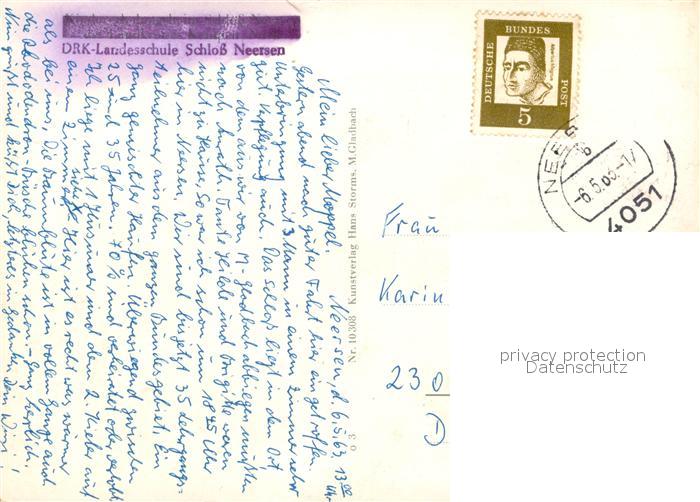 DRK-Landesschule Schloß Neersen
DEUTSCHE BUNDES POST
Albertus Magnus
5
NEERS
-6.5.63-17
4051
Neersen, d. 6.5.63, 13.00 Uhr
Mein lieber Moppel,
Gestern abend nach guter Fahrt hier eingetroffen.
Unterbringung mit 3 Mann in einem Zimmer sehr
gut, Verpflegung auch. Das Schloß liegt in dem Ort,
von dem aus wir von M-Gladbach abbiegen mußten
nach Anrath. Tante und Brigitte waren
nicht zu Hause, so war ich schon um 18 45 Uhr
hier in Neersen. Wir sind bis jetzt 35 Lehrgangs-
teilnehmer aus dem ganzen Bundesgebiet. Ein
ganz gemischter Haufen. Überwiegend zwischen
25 und 35 Jahren. 70% sind verheiratet oder verlobt.
Ich liege mit 1 und den 2. Kieler auf
einem Zimmer. Hier ist es recht viel wärmer
als bei uns. Die Baumblüte ist in vollem Gange auch
die Rhododendron-Büsche blühen schon. - Ganz herzlich
grüßt und küßt Dich, stets in Gedanken, Dein
Nr. 10308 Kunstverlag Hans Storms, M.Gladbach
o 3
Frau
Karin
230
D
privacy protection
Datenschutz